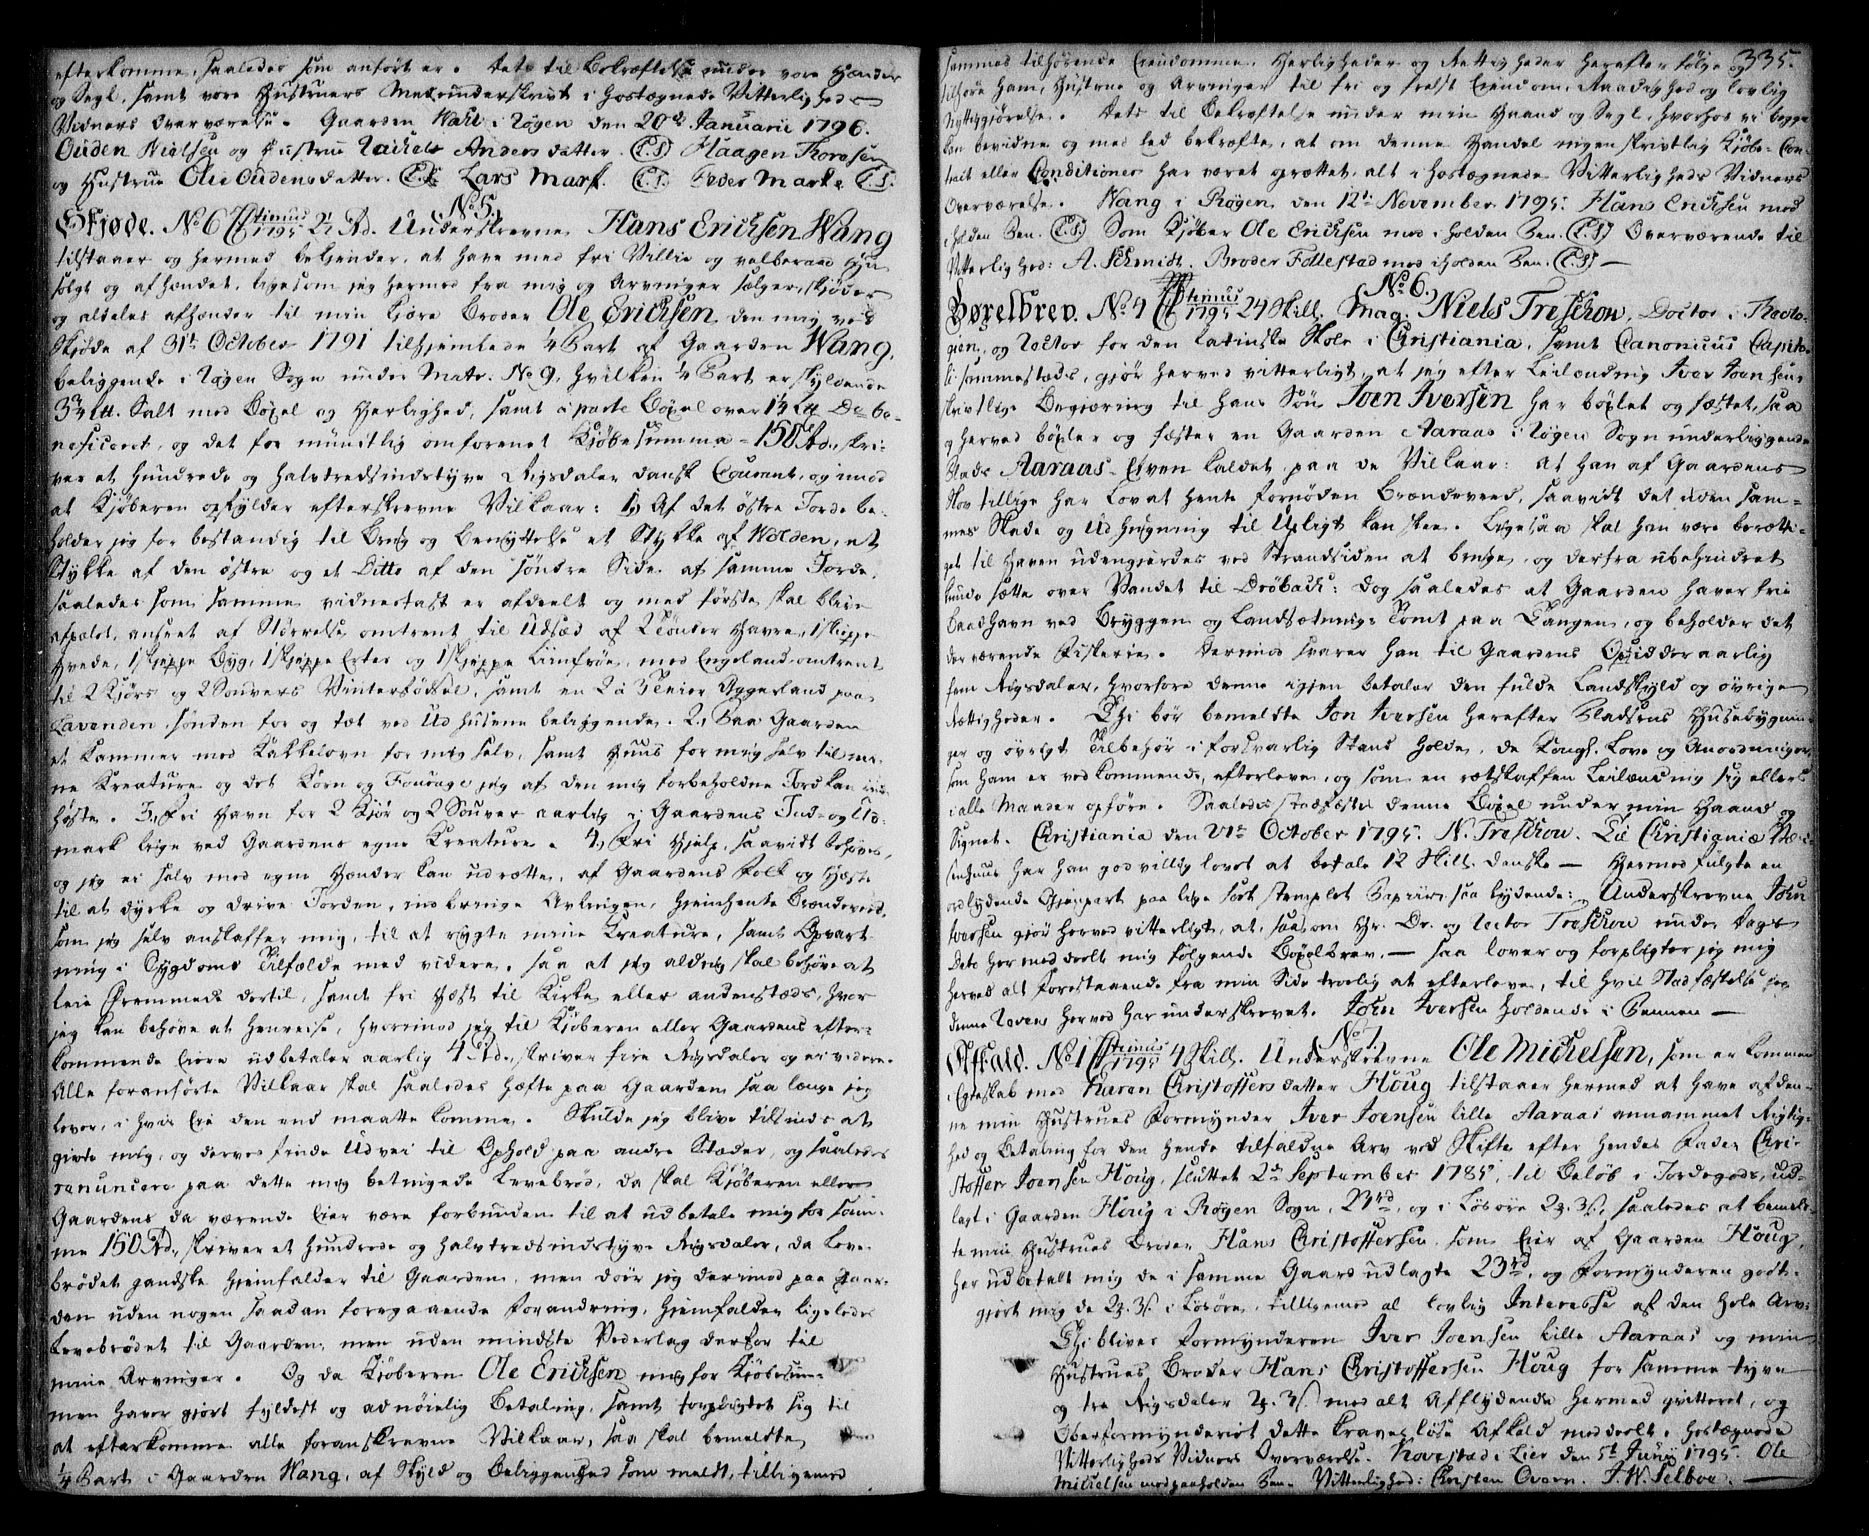 efterkomme, saaledes som anført er. Dets til Bekræftelse under vore Hænder
og Segl, samt vore Hustruers Medunderskrivt i hostegnede Vitterligheds
Vidners Overværelse. Gaarden i Røgen den 20de Januarii 1796.
Ouden Nielsen og Hustrue Rachele Anders datter. (L.S) Haagen Thoresen
og Hustrue Olie Oudensdatter. (L.S) Lars Marf. (L.S.) Peder Marke (L.S.
No 5.
Skjøde. No 6 1795 21 Rd. Underskrevne Hans Ericksen Wang
tilstaaer og hermed bekjender, at have med fri Villie og velberaad Hu
solgt og afhændet, ligesom jeg hermed fra mig og Arvinger sælger, skjøder
og aldeles afhænder til min kjære Broder Ole Ericksen den mig ved
Skjøde af 31te October 1791 tilhjemlede 1/4 Part af Gaarden Wang,
beliggende i Røgen Sogn under Matr. No 9, hvilken 1/4 Part er skyldende
3 3/4 Lt. Salt med Bøxel og Herlighed, samt aparte Bøxel over 1 1/4 Be be-
neficeret, og det for mündtlig omforenet Kjøbesumma 150 Rd., skri-
ver et Hundrede og halvtredsindstyve Rigsdaler dansk Courant, og imod
at Kjøberen opfylder efterskrevne Vilkaar: 1) Af det østre Jorde be-
holder jeg for bestandig til Brug og Benyttelse et Stykke af Volden, et
Stykke af den østre og et Ditto af den söndre Side af samme Jorde,
saaledes som samme vidnefast er afdeelt og med første skal blive
afpælet, anseet af Størrelse omtrent til Udsæd af 2 Tönder Havre, 1 Skieppe
Hvede, 1 Skjeppe Byg, 1 Skjeppe Erter og 1 Skjeppe Liinfröe, med Engeland omtrent
til 2 Kjörs og 2 Souvers Vinterfödsel, samt en 2 à 3 Agerland paa
Lavenden sönden for og tæt ved Udhusene beliggende. 2) Paa Gaarden
et Kammer med Kakkelovn for mig selv, samt Huus for mig selv til mi-
ne Kreature og det Korn og Fourage jeg af den mig forbeholdne Jord kan ind-
høste. 3) Fri Havn for 2 Kjör og 2 Souver aarlig i Gaardens Ind- og Ud-
mark lige ved Gaardens egne Kreature. 4) Fri Hjelp, saavidt behøves,
og jeg ei selv med egne Hænder kan udrette, af Gaardens Folk og Hæste
til at dyrke og drive Jorden, indbringe Avlingen, hjemhente Brændeveed,
som jeg selv anskaffer mig, til at røgte mine Creature, samt Opvart-
ning i Sygdoms Tilfælde med videre, saa at jeg aldrig skal behøve at
leie Fremmede dertil, samt fri Hæst til Kirke eller andenstæds, hvor
jeg kan behøve at henreise, hvorimod jeg til Kjøberen eller Gaardens efter-
kommende Eiere udbetaler aarlig 4 Rd., skriver fire Rigsdaler og ei videre.
Alle foranførte Vilkaar skal saaledes hæfte paa Gaarden saa længe jeg
lever, i hvis Eie den end maatte komme. Skulde jeg blive tilsinds at
givte mig, og derved finde Udvei til Ophold paa andre Stæder, og saaledes
renuncere paa dette mig betingede Levebrød, da skal Kjøberen eller
Gaardens da værende Eier være forbunden til at udbetale mig for sam-
me 150 Rd., skriver et Hundrede og halvtredsindstyve Rigsdaler, da Leve-
brødet gandske hjemfalder til Gaarden, men döer jeg derimod paa Gaar-
den uden nogen saadan foregaaende Forandring, hjemfalder ligeledes
Levebrødet til Gaarden, men uden mindste Vederlag derfor til
mine Arvinger. Og da Kjøberen Ole Ericksen mig for Kjøbesum-
men haver gjort fyldest og adnöielig Betaling, samt forpligtet sig til
at efterkomme alle foranskrevne Vilkaar, saa skal bemeldte
1/4 Part i Gaarden Wang, af Skyld og Beliggenhed som meldt, tilligemed
335.
sammes tilhörende Eiendomme, Herligheder og Rettigheder herefter følge og
tilhöre ham, Hustrue og Arvinger til fri og frelst Eiendom, Raadighed og lovlig
Nyttegjörelse. Dets til Bekræftelse under min Haand og Segl, hvorhos vi begge
kan bevidne og med Eed bekræfte, at om denne Handel ingen skrivtlig Kjöbe-Con-
tract eller Conditioner har været oprettet, alt i hostegnede Vitterligheds Vidners
Overværelse. Wang i Røgen den 12te November 1795. Hans Ericksen med
iholden Pen. (L.S.) Som Kjöber Ole Ericksen med iholden Pen. (L.S.) Overværende til
Vitterlighed: A. Schmidt. Broder Follestad med iholden Pen. (L.S.)
No 6.
Bøxelbrev. No 4 1795 24 Skill. Mag. Niels Treschow, Doctor i Theolo-
gien, og Rector for den latinske Skole i Christiania, samt Canonicus Capitu-
li sammestæds, gjör herved vitterligt, at jeg efter Leilænding Iver Joensens
skrivtlige Begjæring til hans Sön Joen Iversen har böxlet og fæstet, saa
og herved böxler og fæster en Gaarden Aaraas i Røgen Sogn underliggende
Plads Aaraas-Eiven kaldet, paa de Vilkaar: at han af Gaardens
Skov tillige har Lov at hente fornöden Brændeveed, saavidt det uden sam-
mes Skade og Udhugning til Upligt kan skee. Ligesaa skal han være berætti-
get til Haven udengjerdes ved Strandsiden at bruge, og derfra ubehindret
kunde sætte over Vandet til Dröbach: dog saaledes at Gaarden haver fri
Baadhavn ved Bryggen og Landsætnings Tomt paa Tangen, og beholder det
derværende Fiskerie. Derimod svarer han til Gaardens Opsidder aarlig
fem Rigsdaler, hvorfore denne igjen betaler den fulde Landskyld og övrige
Rettigheder. Thi bör bemeldte Jon Iversen herefter Pladsens Huusebygnin-
ger og övrigt Tilbehör i forsvarlig Stand holde, de Kongl. Love og Anordninger,
som ham er vedkommende, efterleve, og som en retskaffen Leilænding sig ellers
i alle Maader opföre. Saaledes stadfæstes denne Böxel under min Haand og
Signet. Christiania den 21de October 1795. N. Treschow. Til Christianiæ
har han godvillig lovet at betale 12 Skill. danske — Hermed fulgte en
ordlydende Gjenpart paa lige sort stemplet Papiir, saa lydende: Underskrevne John
Iversen gjör herved vitterligt, at, saasom Hr. Dr. og Rector Treschow under Dags
Dato har meddeelt mig fölgende Böxelbrev, — saa lover og forpligter jeg mig
herved alt Forestaaende fra min Side troelig at efterleve, til hvis Stadfæstelse jeg
denne Revers herved har underskrevet. John Iversen holdende i Pennen —
No 7.
Afkald. No 1 1795 4 Skill. Underskrevne Ole Michelsen, som er kommen
i Egteskab med Karen Christoffersdatter Houg tilstaaer hermed at have af den-
ne min Hustrues Formynder Iver Joensen lille Aaraas annammet Rigtig-
hed og Betaling for den hende tilfaldne Arv ved Skifte efter hendes Fader Chri-
stoffer Joensen Houg, sluttet 2den September 1785, til Belöb i Jordegods, ud-
lagt i Gaarden Houg i Røgen Sogn, 23 rd, og i Lösöre 2 q. 3 s., saaledes at bemeld-
te min Hustrues Broder Hans Christoffersen som Eier af Gaarden Houg,
har udbetalt mig de i samme Gaard udlagte 23 rd, og Formynderen godt-
gjort mig de 2 q. 3 s. i Lösöre, tilligemed al lovlig Interesse af den hele Arv:
Thi bliver Formynderen Iver Joensen lille Aaraas og min
Hustrues Broder Hans Christoffersen Houg for samme tyve
og tre Rigsdaler 2 q. 3 s. med alt Afflydende hermed qvitteret, og
Overformynderiet dette kravesløse Afkald meddeelt i hostegnede
Vitterligheds Vidners Overværelse. Hovestad i Lier den 5t Junij 1795. Ole
Michelsen med paaholden Pen. Vitterlighed: Christen Overn. J. W. Selboe.